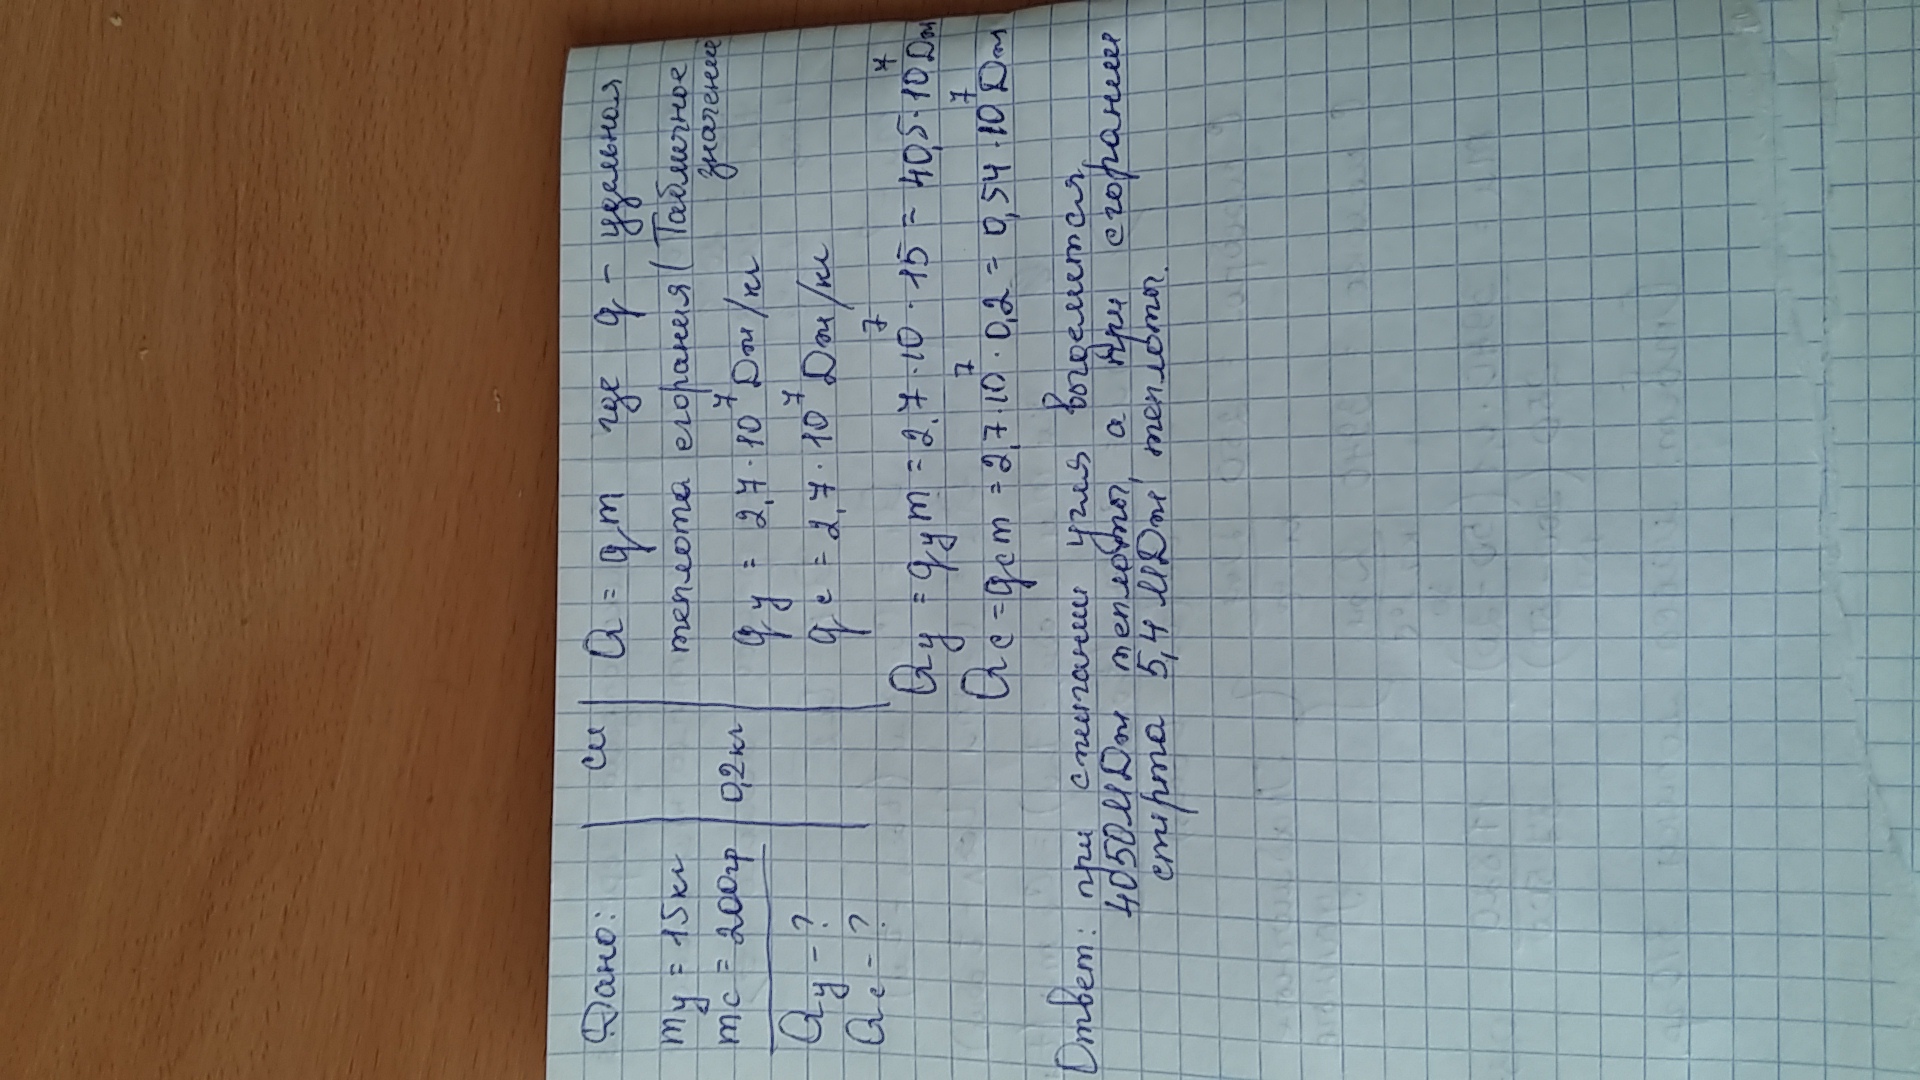 Дано:
mу = 15кг
mс = 200гр
Qу - ?
Qс - ?
СИ
0,2кг
Q = qm где q - удельная
теплота сгорания (Табличное
значение
qу = 2,7·10⁷ Дж/кг
qс = 2,7·10⁷ Дж/кг
Qу = qуm = 2,7·10⁷·15 = 40,5·10⁷Дж
Qс = qсm = 2,7·10⁷·0,2 = 0,54·10⁷Дж
Ответ: при сжигании угля выделится
4050МДж теплоты, а при сгорании
спирта 5,4 МДж теплоты.